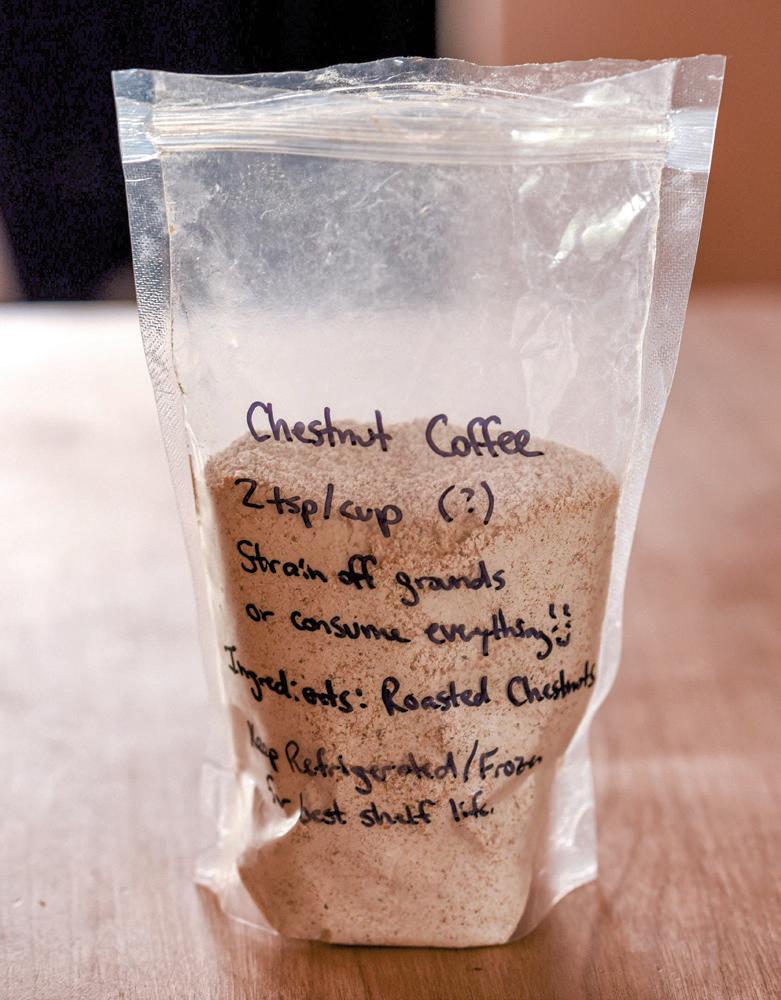 Chestnut Coffee
2 tsp/cup (?)
Strain off grounds
or consume everything!
Ingredients: Roasted Chestnuts
Keep Refrigerated/Frozen
for best shelf life.